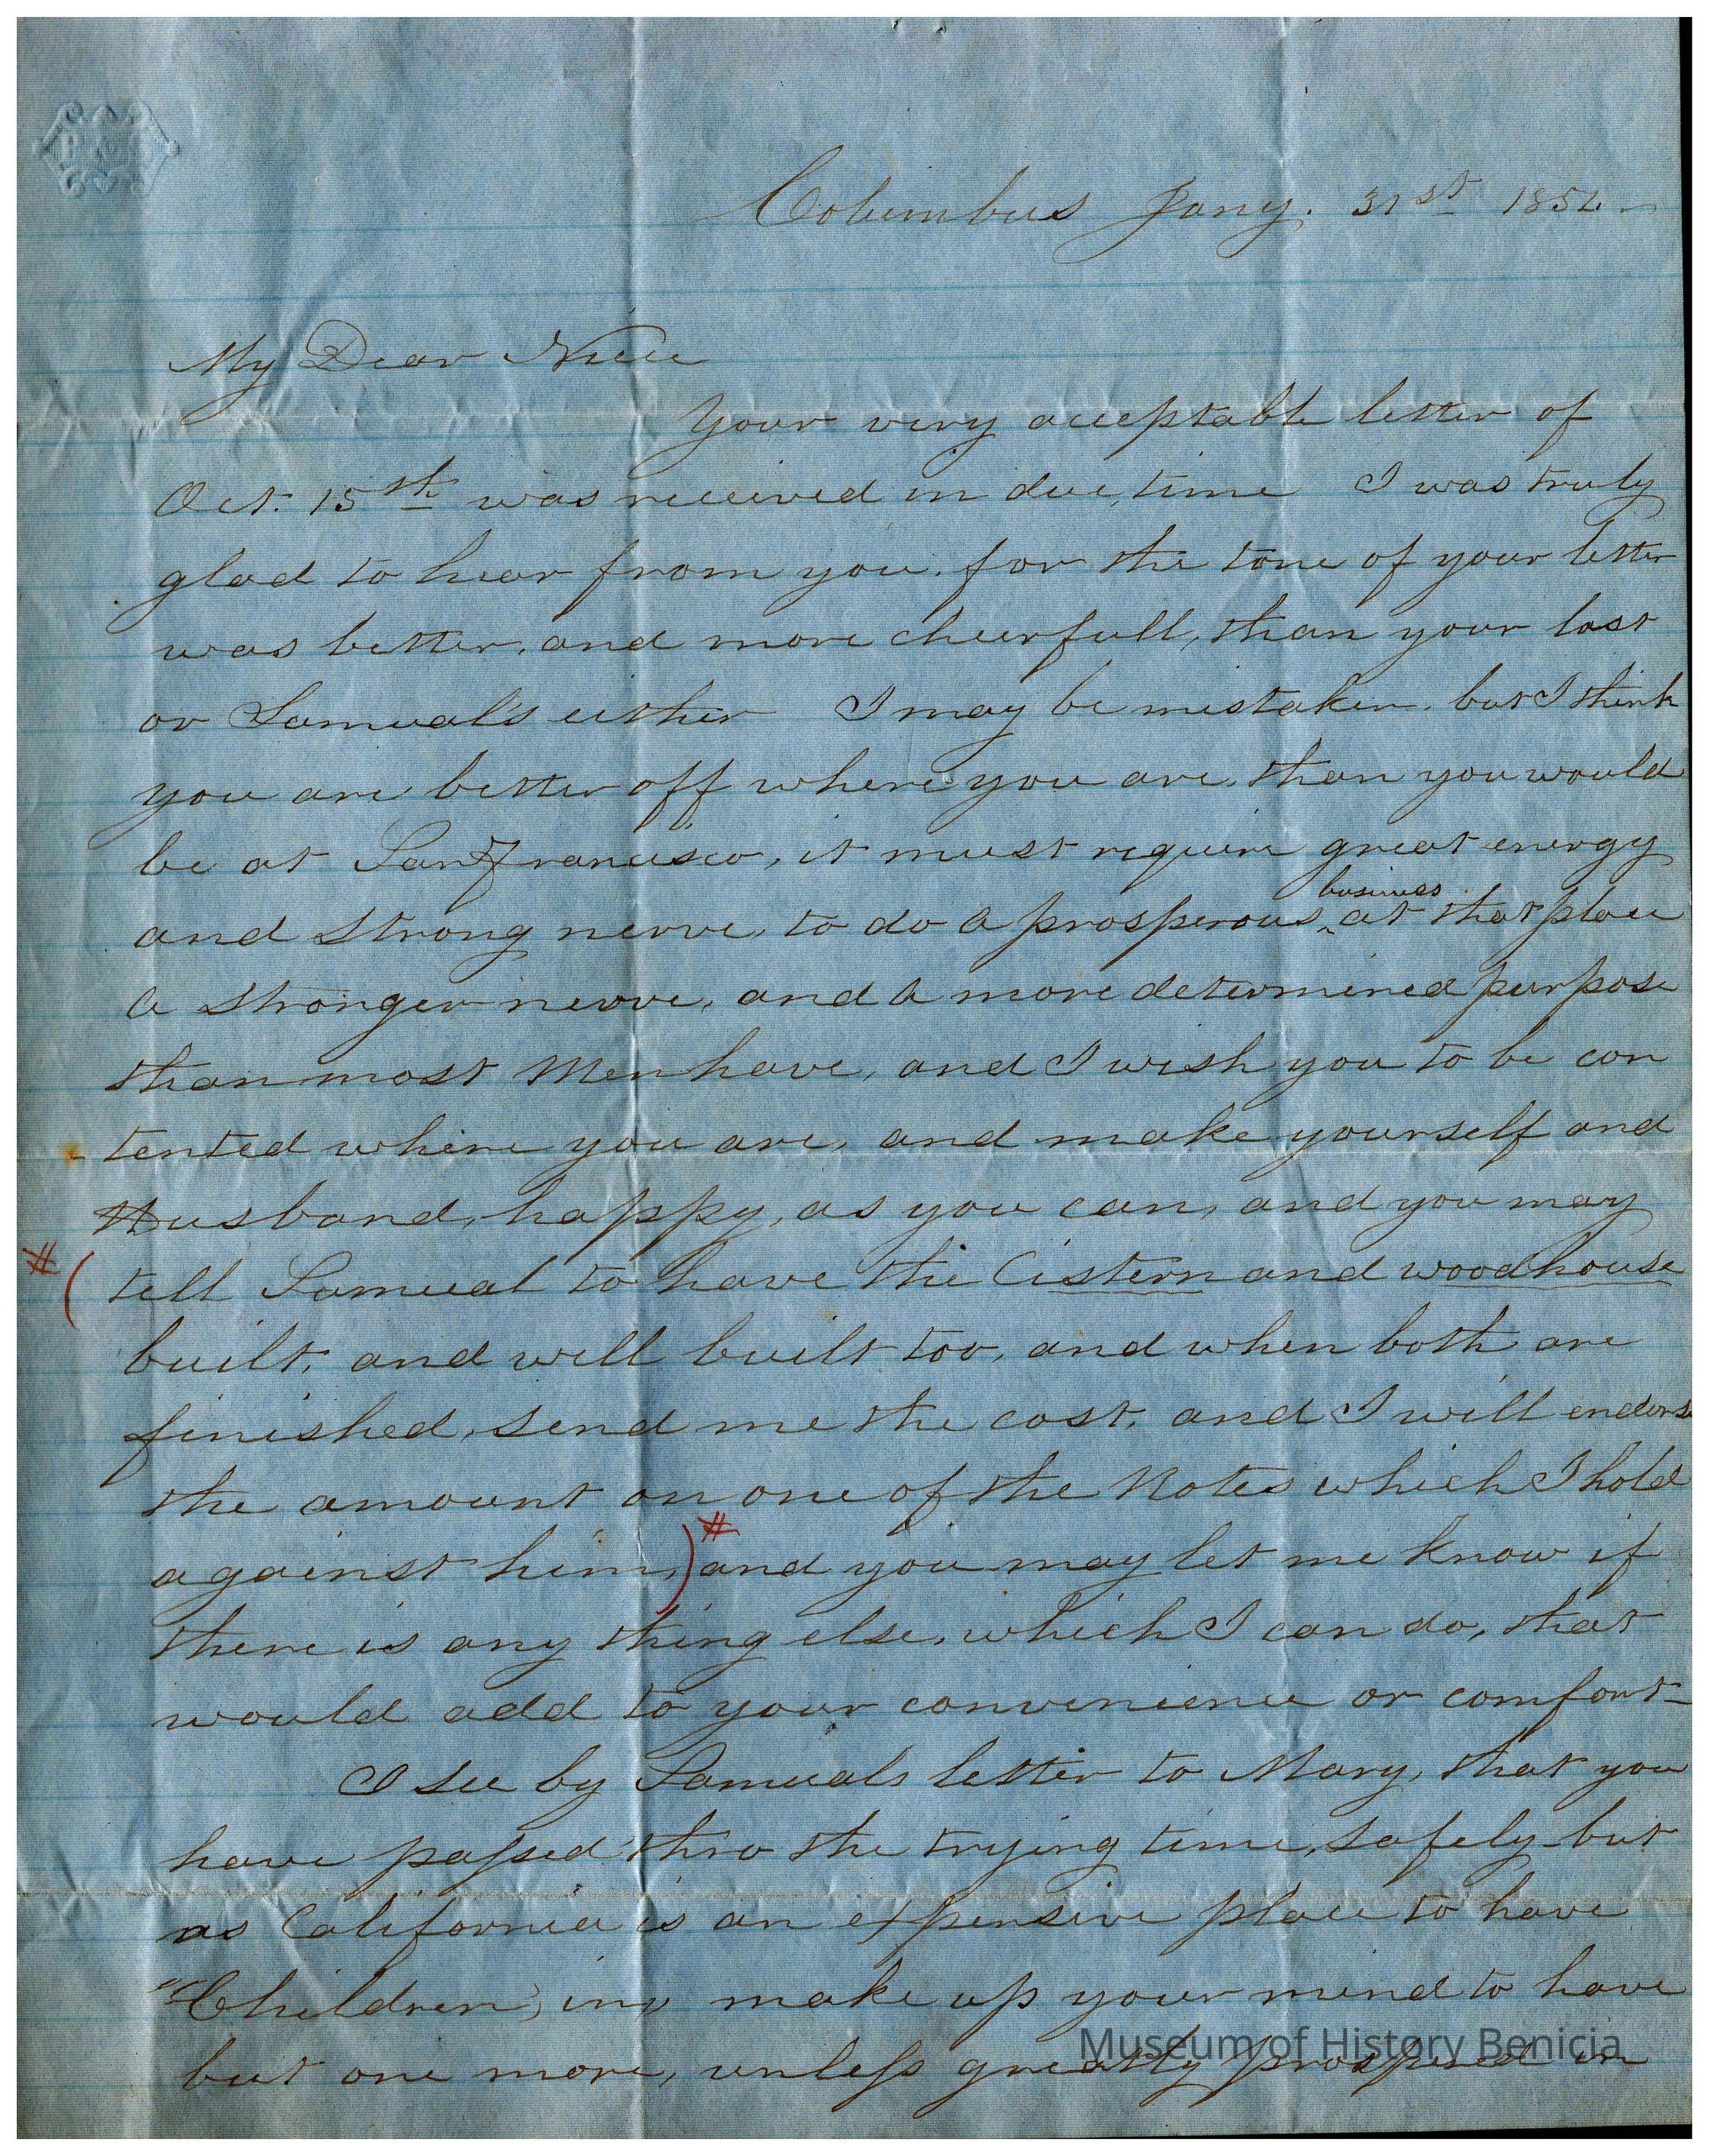 Columbus Jany. 31st 1854
My Dear Niece
Your very acceptable letter of
Oct. 15th was received in due, time I was truly
glad to hear from you. for the tone of your letter
was better, and more cheerfull, than your last
or Samual's either I may be mistaken. but I think
you are better off where you are, than you would
be at San Francisco, it must require great energy
and strong nerve, to do a prosperous ^business at that place
a stronger nerve, and a more determined purpose
than most Men have, and I wish you to be con
-tented where you are, and make yourself and
Husband, happy, as you can, and you may
# ( tell Samual to have the Cistern and woodhouse
built, and well built too, and when both are
finished, send me the cost, and I will endorse
the amount on one of the Notes which I hold
against him,)# and you may let me know if
there is any thing else, which I can do, that
would add to your convenience or comfort-
I see by Samuals letter to Mary, that you
have passed thro the trying time, safely but
as California is an expensive place to have
"Children, in, make up your mind to have
but one more, unless greatly prospered in
Museum of History Benicia